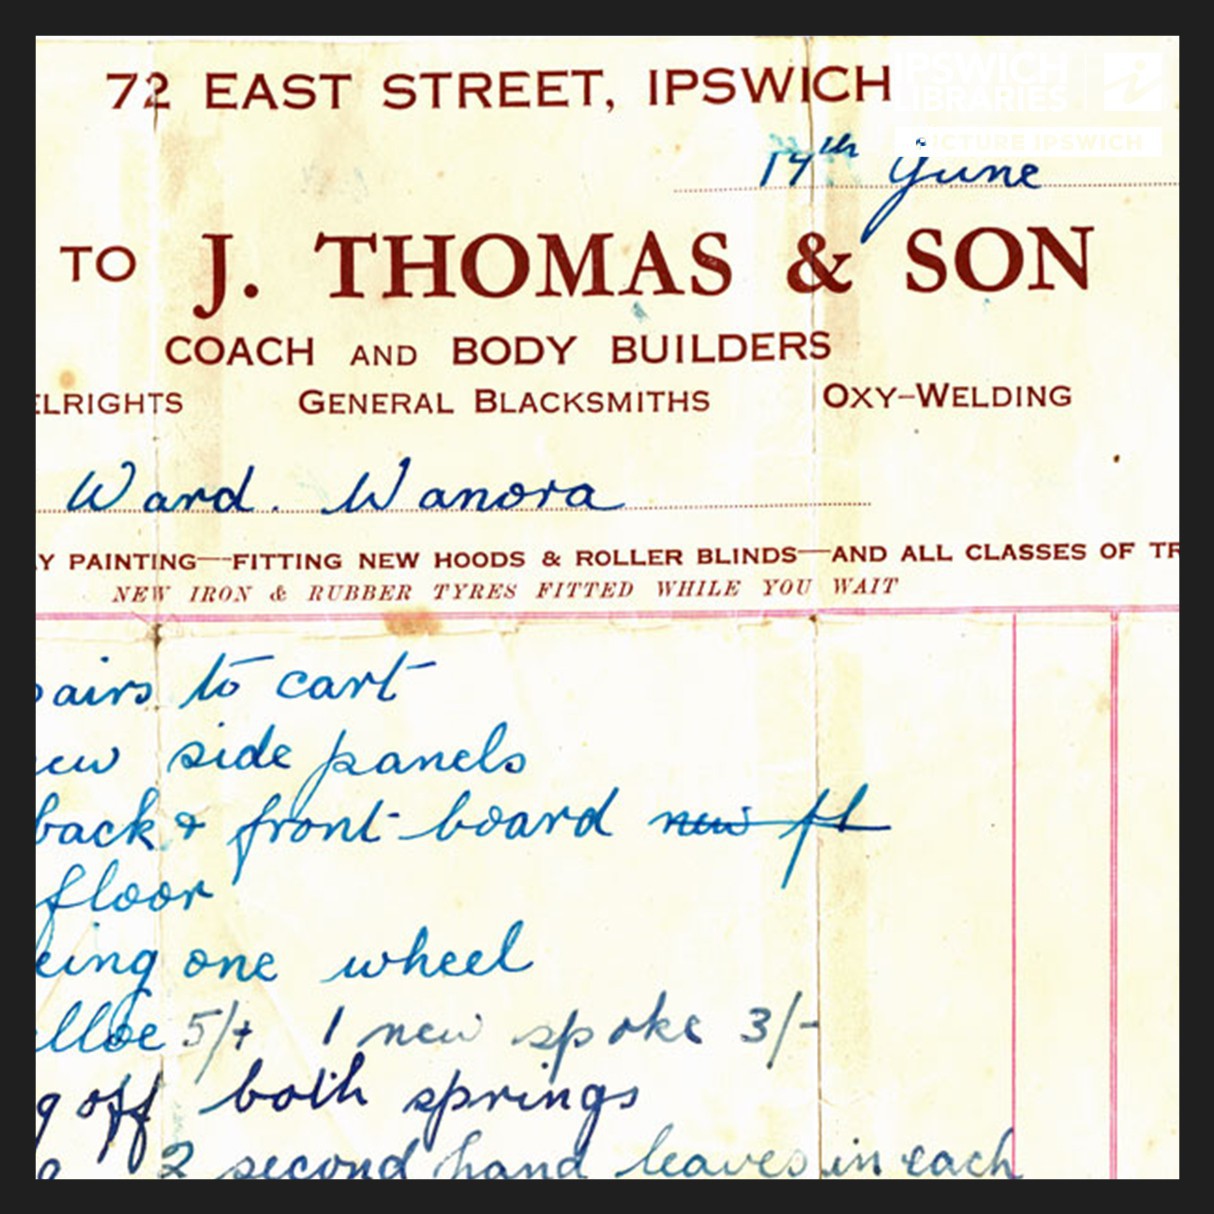 72 EAST STREET, IPSWICH
IPSWICH
LIBRARIES
PICTURE IPSWICH
17th June
TO J. THOMAS & SON
COACH AND BODY BUILDERS
ELRIGHTS GENERAL BLACKSMITHS OXY-WELDING
Ward. Wanora
Y PAINTING—FITTING NEW HOODS & ROLLER BLINDS—AND ALL CLASSES OF TR
NEW IRON & RUBBER TYRES FITTED WHILE YOU WAIT
pairs to cart
ew side panels
back & front board new fl
floor
eing one wheel
elloe 5/+ 1 new spoke 3/-
g off both springs
2 second hand leaves in each